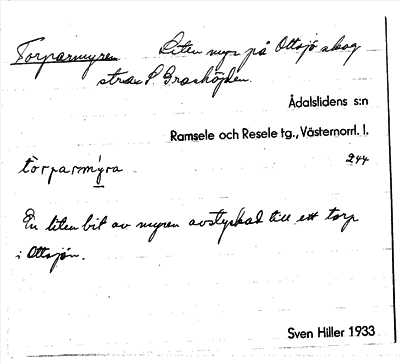 Torparmyren Liten myr på Ottsjö skog
strax S. Grashöjden.
Ådalslidens s:n
Ramsele och Resele tg., Västernorrl. l.
torparmýra 244
En liten bit av myren avstyckad till ett torp
i Ottsjön.
Sven Hiller 1933